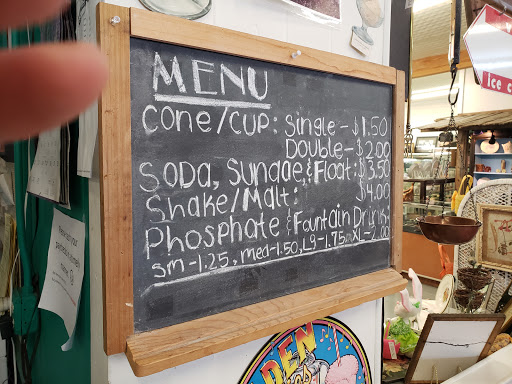 MENU
Cone/Cup: Single - $1.50
Double - $2.00
Soda, Sundae & Float: $3.50
Shake/Malt: $4.00
Phosphate & Fountain Drink:
sm-1.25, med-1.50, Lg-1.75, XL-2.00
ice c
DEN